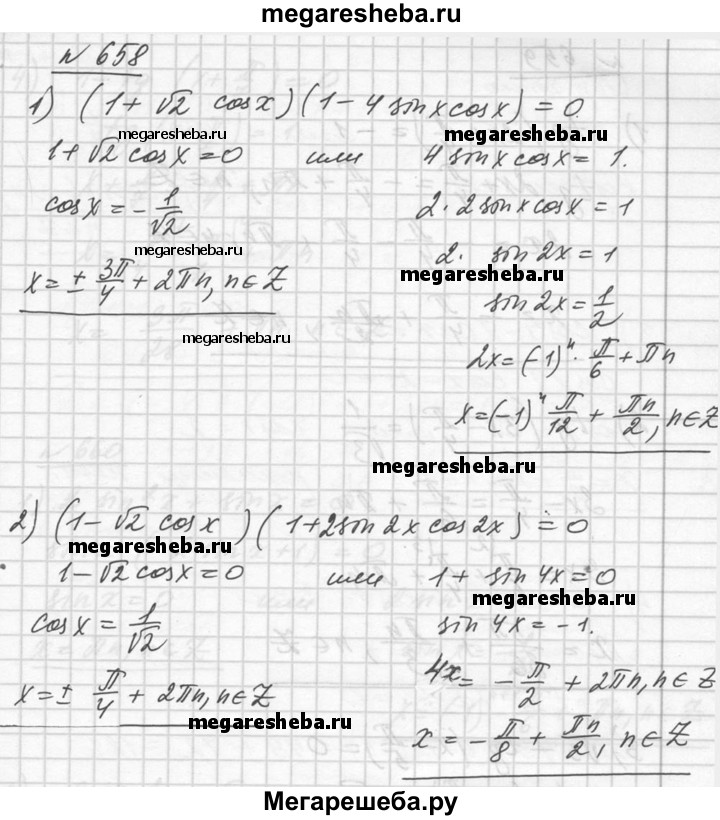 megaresheba.ru
№ 658
1) (1 + √2 cos x)(1 - 4 sin x cos x) = 0.
megaresheba.ru megaresheba.ru
1 + √2 cos x = 0 или 4 sin x cos x = 1.
cos x = - 1/√2 2 · 2 sin x cos x = 1
megaresheba.ru 2 · sin 2x = 1
megaresheba.ru
x = ± 3π/4 + 2πn, n ∈ Z sin 2x = 1/2
megaresheba.ru
2x = (-1)ⁿ · π/6 + πn
x = (-1)ⁿ π/12 + πn/2, n ∈ Z
megaresheba.ru
2) (1 - √2 cos x)(1 + 2 sin 2x cos 2x) = 0
megaresheba.ru
1 - √2 cos x = 0 или 1 + sin 4x = 0
megaresheba.ru
cos x = 1/√2 sin 4x = -1.
x = ± π/4 + 2πn, n ∈ Z 4x = - π/2 + 2πn, n ∈ Z
megaresheba.ru
x = - π/8 + πn/2, n ∈ Z
Мегарешеба.ру